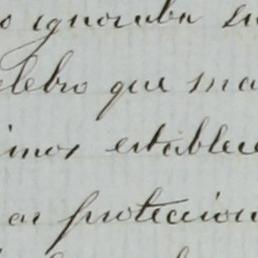 o ignoraba su
elebro que ma
imos establece
os proteccion